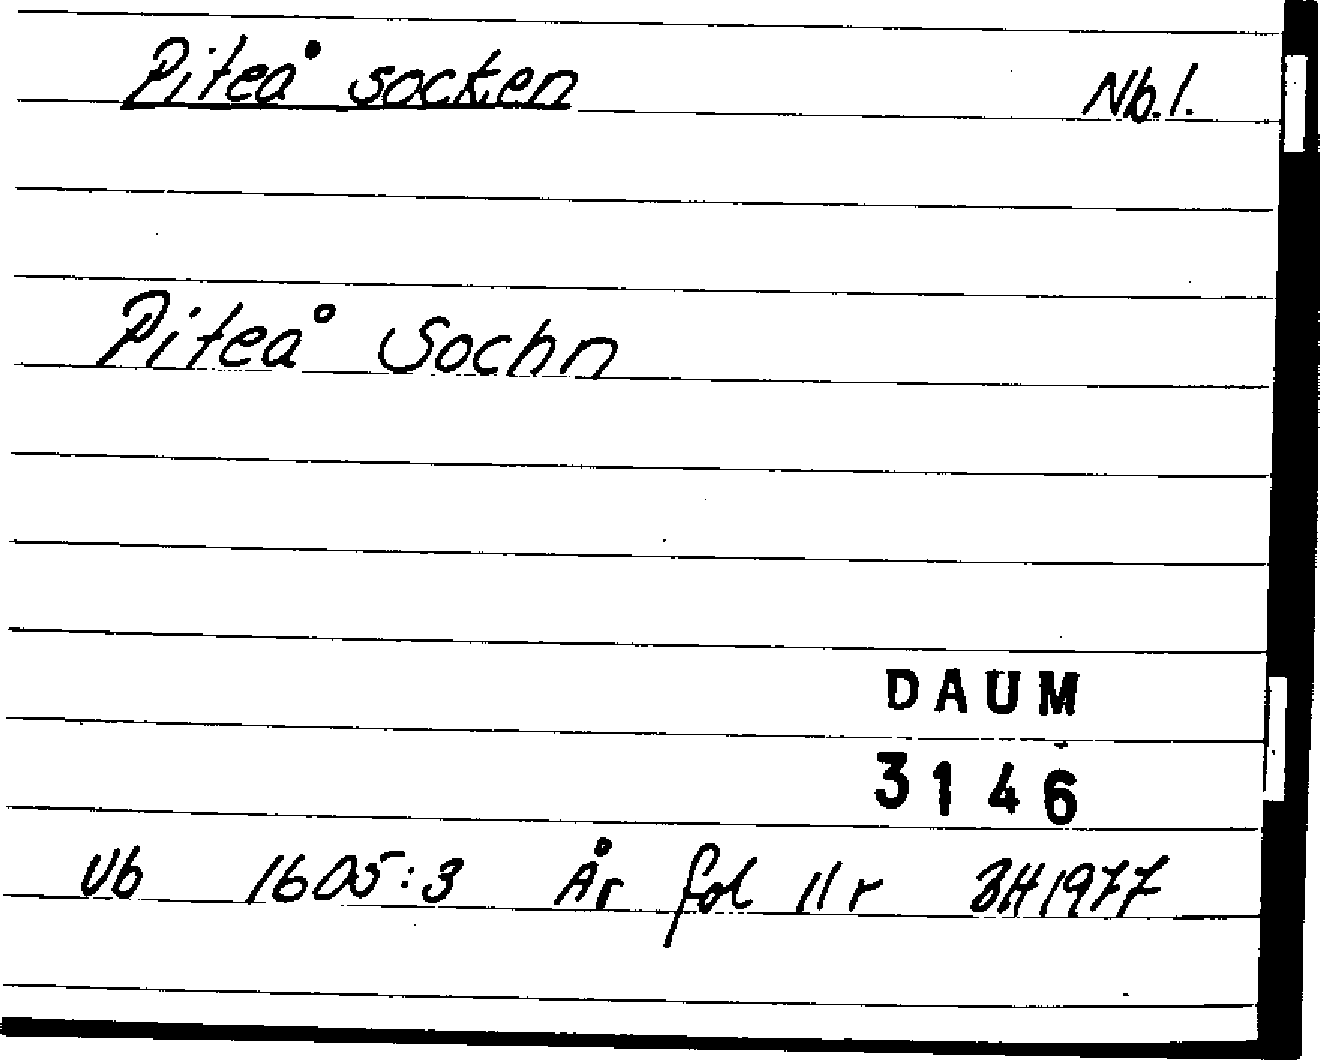 Piteå socken Nb.l.
Piteå Sochn
DAUM
3146
Vb 1605:3 År fol 11 r BH 1977